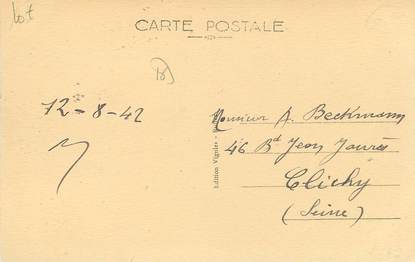 Lot
CARTE POSTALE
12-8-42
Monsieur A. Beckmann
46 Bd Jean Jaurès
Clichy
(Seine)
Edition Vignoles